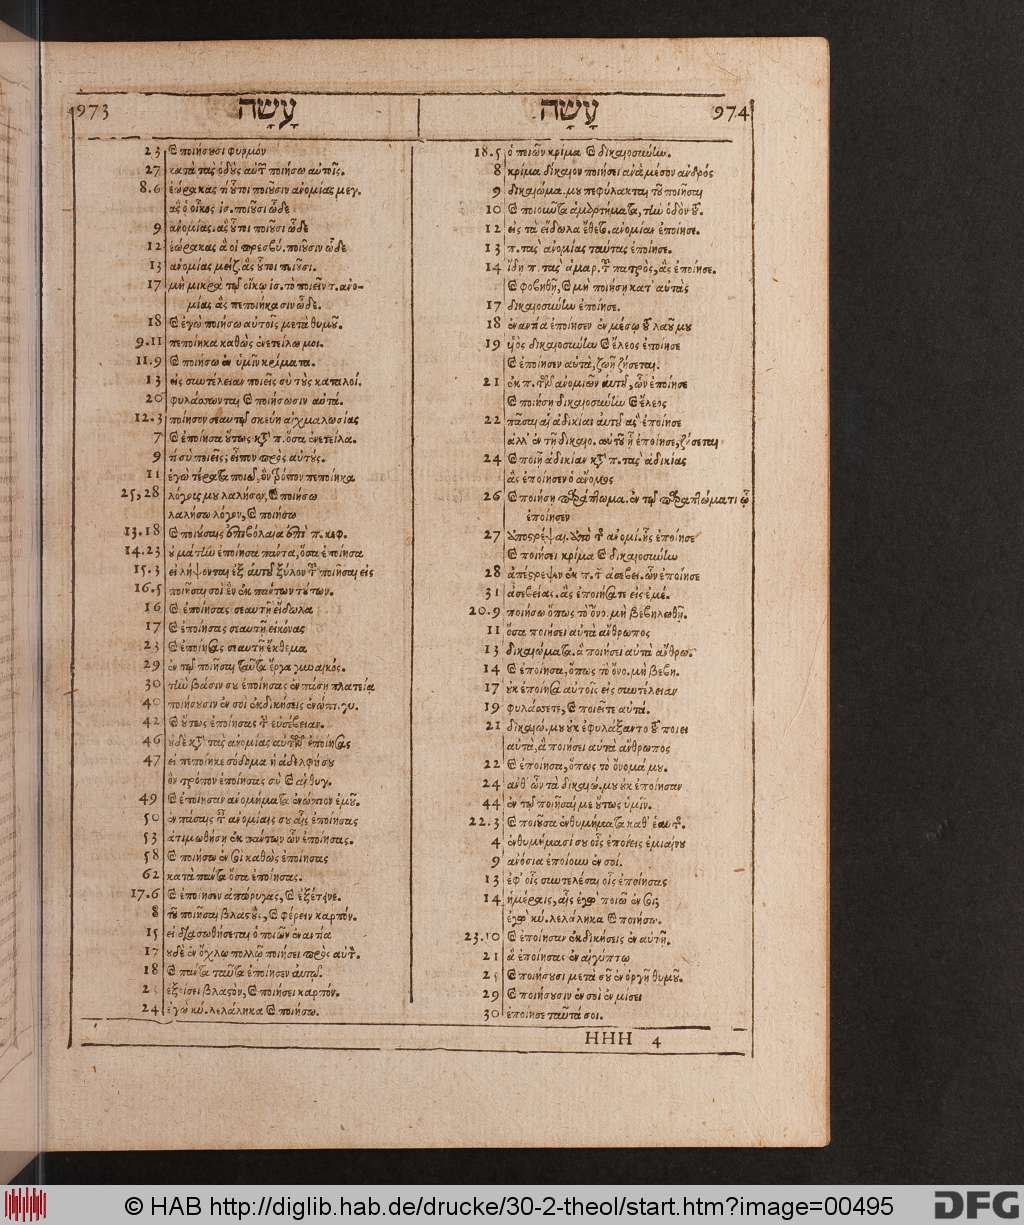 973 עָשָׂה
עָשָׂה 974
23 καὶ ποιήσουσι φυρμόν
27 κατὰ τὰς ὁδοὺς αὐτῶν ποιήσω αὐτοῖς.
8.6 ἑώρακας τί οὗτοι ποιοῦσιν ἀνομίας μεγ.
ἃς ὁ οἶκος ἰσ. ποιοῦσι ὧδε
9 ἀνομίας. ἃς οὗτοι ποιοῦσι ὧδε
12 ἑώρακας ἃ οἱ πρεσβύ. ποιοῦσιν ὧδε
13 ἀνομίας μείζ. ἃς οὗτοι ποιοῦσι.
17 μὴ μικρὰ τῷ οἴκῳ ἰσ. τὸ ποιεῖν τ. ἀνο-
μίας ἃς πεποιήκασιν ὧδε.
18 καὶ ἐγὼ ποιήσω αὐτοῖς μετὰ θυμοῦ.
9.11 πεποίηκα καθὼς ἐνετείλω μοι.
11.9 καὶ ποιήσω ἐν ὑμῖν κρίματα.
13 εἰς συντέλειαν ποιεῖς σὺ τοὺς καταλοί.
20 φυλάσσωνται καὶ ποιήσωσιν αὐτά.
12.3 ποίησον σεαυτῷ σκεύη αἰχμαλωσίας
7 καὶ ἐποίησα οὕτως κατὰ π. ὅσα ἐνετείλα.
9 τί σὺ ποιεῖς; εἶπον πρὸς αὐτούς.
11 ἐγὼ τέρατα ποιῶ, ὃν τρόπον πεποίηκα
25,28 λόγους μου λαλήσω, καὶ ποιήσω
λαλήσω λόγον, καὶ ποιήσω
13.18 καὶ ποιούσαις ἐπιβόλαια ἐπὶ π. κεφ.
14.23 οὐ μάτην ἐποίησα πάντα, ὅσα ἐποίησα
15.3 εἰ λήψονται ἐξ αὐτοῦ ξύλον τοῦ ποιῆσαι εἰς
16.5 ποιῆσαι σοὶ ἓν ἐκ πάντων τούτων.
16 καὶ ἐποίησας σεαυτῇ εἴδωλα
17 καὶ ἐποίησας σεαυτῇ εἰκόνας
23 καὶ ἐποίησας σεαυτῇ ἔκθεμα
29 ἐν τῷ ποιῆσαι ταῦτα ἔργα γυναικός.
30 τὴν βάσιν σου ἐποίησας ἐν πάσῃ πλατεία
40 ποιήσουσιν ἐν σοὶ ἐκδικήσεις ἐνώπι. γυ.
42 καὶ οὕτως ἐποίησας τὴν εὐσέβειαν.
46 οὐδὲ κατὰ τὰς ἀνομίας αὐτῶν ἐποίησας
47 εἰ πεποίηκε σόδομα ἡ ἀδελφή σου
ὃν τρόπον ἐποίησας σὺ καὶ αἱ θυγ.
49 καὶ ἐποίησαν ἀνομήματα ἐνώπιον ἐμοῦ.
50 ἐν πάσαις τ. ἀνομίαις σου αἷς ἐποίησας
53 ἀτιμωθήσῃ ἐκ πάντων ὧν ἐποίησας.
58 καὶ ποιήσω ἐν σοὶ καθὼς ἐποίησας
62 κατὰ πάντα ὅσα ἐποίησας.
17.6 καὶ ἐποίησεν ἀπώρυγας, καὶ ἐξέτεινε.
8 τοῦ ποιῆσαι βλαστοὺς, καὶ φέρειν καρπόν.
15 εἰ διασωθήσεται ὁ ποιῶν ἐναντία
17 οὐδὲ ἐν ὄχλῳ πολλῷ ποιήσει πρὸς αὐτ.
18 καὶ πάντα ταῦτα ἐποίησεν αὐτῷ.
2 ἐξοίσει βλαστὸν, καὶ ποιήσει καρπόν.
24 ἐγὼ κύ. λελάληκα καὶ ποιήσω.
18.5 ὁ ποιῶν κρίμα καὶ δικαιοσύνην.
8 κρίμα δίκαιον ποιήσει ἀνὰ μέσον ἀνδρός
9 δικαιώμα. μου πεφύλακται τοῦ ποιῆσαι
10 καὶ ποιοῦντα ἁμαρτήματα, τὴν ὁδὸν τ.
12 εἰς τὰ εἴδωλα ἔθετο. ἀνομίαν ἐποίησε.
13 π. τὰς ἀνομίας ταύτας ἐποίησε.
14 ἴδῃ π. τὰς ἁμαρ. τοῦ πατρὸς, ἃς ἐποίησε.
καὶ φοβηθῇ, καὶ μὴ ποιήσῃ κατ' αὐτὰς
17 δικαιοσύνην ἐποίησε.
18 ἐναντία ἐποίησεν ἐν μέσῳ τοῦ λαοῦ μου
19 υἱὸς δικαιοσύνην καὶ ἔλεος ἐποίησε
καὶ ἐποίησεν αὐτὰ, ζωῇ ζήσεται.
21 ἐκ π. τῶν ἀνομιῶν αὐτοῦ, ὧν ἐποίησε
καὶ ποιήσῃ δικαιοσύνην καὶ ἔλεος
22 πᾶσαι αἱ ἀδικίαι αὐτοῦ ἃς ἐποίησε
ἀλλ' ἐν τῇ δικαιο. αὐτοῦ ᾗ ἐποίησε, ζήσεται
24 καὶ ποιῇ ἀδικίαν κατὰ π. τὰς ἀδικίας
ἃς ἐποίησεν ὁ ἄνομος
26 καὶ ποιήσῃ παράπτωμα. ἐν τῷ παραπτώματι ᾧ
ἐποίησεν
27 ἀποστρέψαι. ἀπὸ τ. ἀνομί. ἧς ἐποίησε
καὶ ποιήσει κρίμα καὶ δικαιοσύνην
28 ἀπέστρεψεν ἐκ π. τ. ἀσεβει. ὧν ἐποίησε
31 ἀσεβείας. ἃς ἐποιήσατε εἰς ἐμέ.
20.9 ποιήσω ὅπως τὸ ὄνο. μὴ βεβηλωθῇ.
11 ὅσα ποιήσει αὐτὰ ἄνθρωπος
13 δικαιώματα. ἃ ποιήσει αὐτὰ ἄνθρω.
14 καὶ ἐποίησα, ὅπως τὸ ὄνο. μὴ βεβη.
17 οὐκ ἐποίησα αὐτοῖς εἰς συντέλειαν
19 φυλάσσετε, καὶ ποιεῖτε αὐτά.
21 δικαιώ. μου οὐκ ἐφυλάξαντο τοῦ ποιεῖ
αὐτὰ, ἃ ποιήσει αὐτὰ ἄνθρωπος
22 καὶ ἐποίησα, ὅπως τὸ ὄνομά μου.
24 ἀνθ' ὧν τὰ δικαιώ. μου οὐκ ἐποίησαν
44 ἐν τῷ ποιῆσαί με οὕτως ὑμῖν.
22.3 καὶ ποιοῦσα ἐνθυμήματα καθ' ἑαυτ.
4 ἐνθυμήμασί σου οἷς ἐποίεις ἐμιαίνου
9 ἀνόσια ἐποίουν ἐν σοί.
13 ἐφ' οἷς συντετέλεσαι οἷς ἐποίησας
14 ἡμέραις, αἷς ἐγὼ ποιῶ ἐν σοί;
ἐγὼ κύ. λελάληκα καὶ ποιήσω.
23.10 καὶ ἐποίησαν ἐκδικήσεις ἐν αὐτῇ.
21 ἃ ἐποίησας ἐν αἰγύπτῳ
25 καὶ ποιήσουσι μετὰ σοῦ ἐν ὀργῇ θυμοῦ.
29 καὶ ποιήσουσιν ἐν σοὶ ἐν μίσει
30 ἐποίησε ταῦτά σοι.
HHH 4
© HAB http://diglib.hab.de/drucke/30-2-theol/start.htm?image=00495
DFG